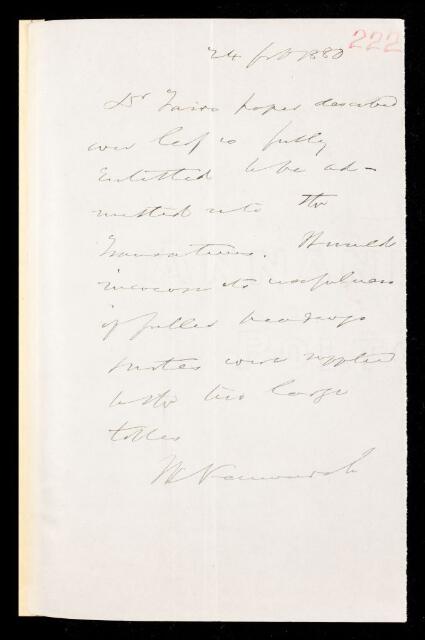 222
24 feb 1880
Dr Farrs paper described
over leaf is fully
Entitled to be ad-
mitted into the
Transactions. It would
increase its usefulness
if fuller headings
& notes were supplied
to the two large
tables